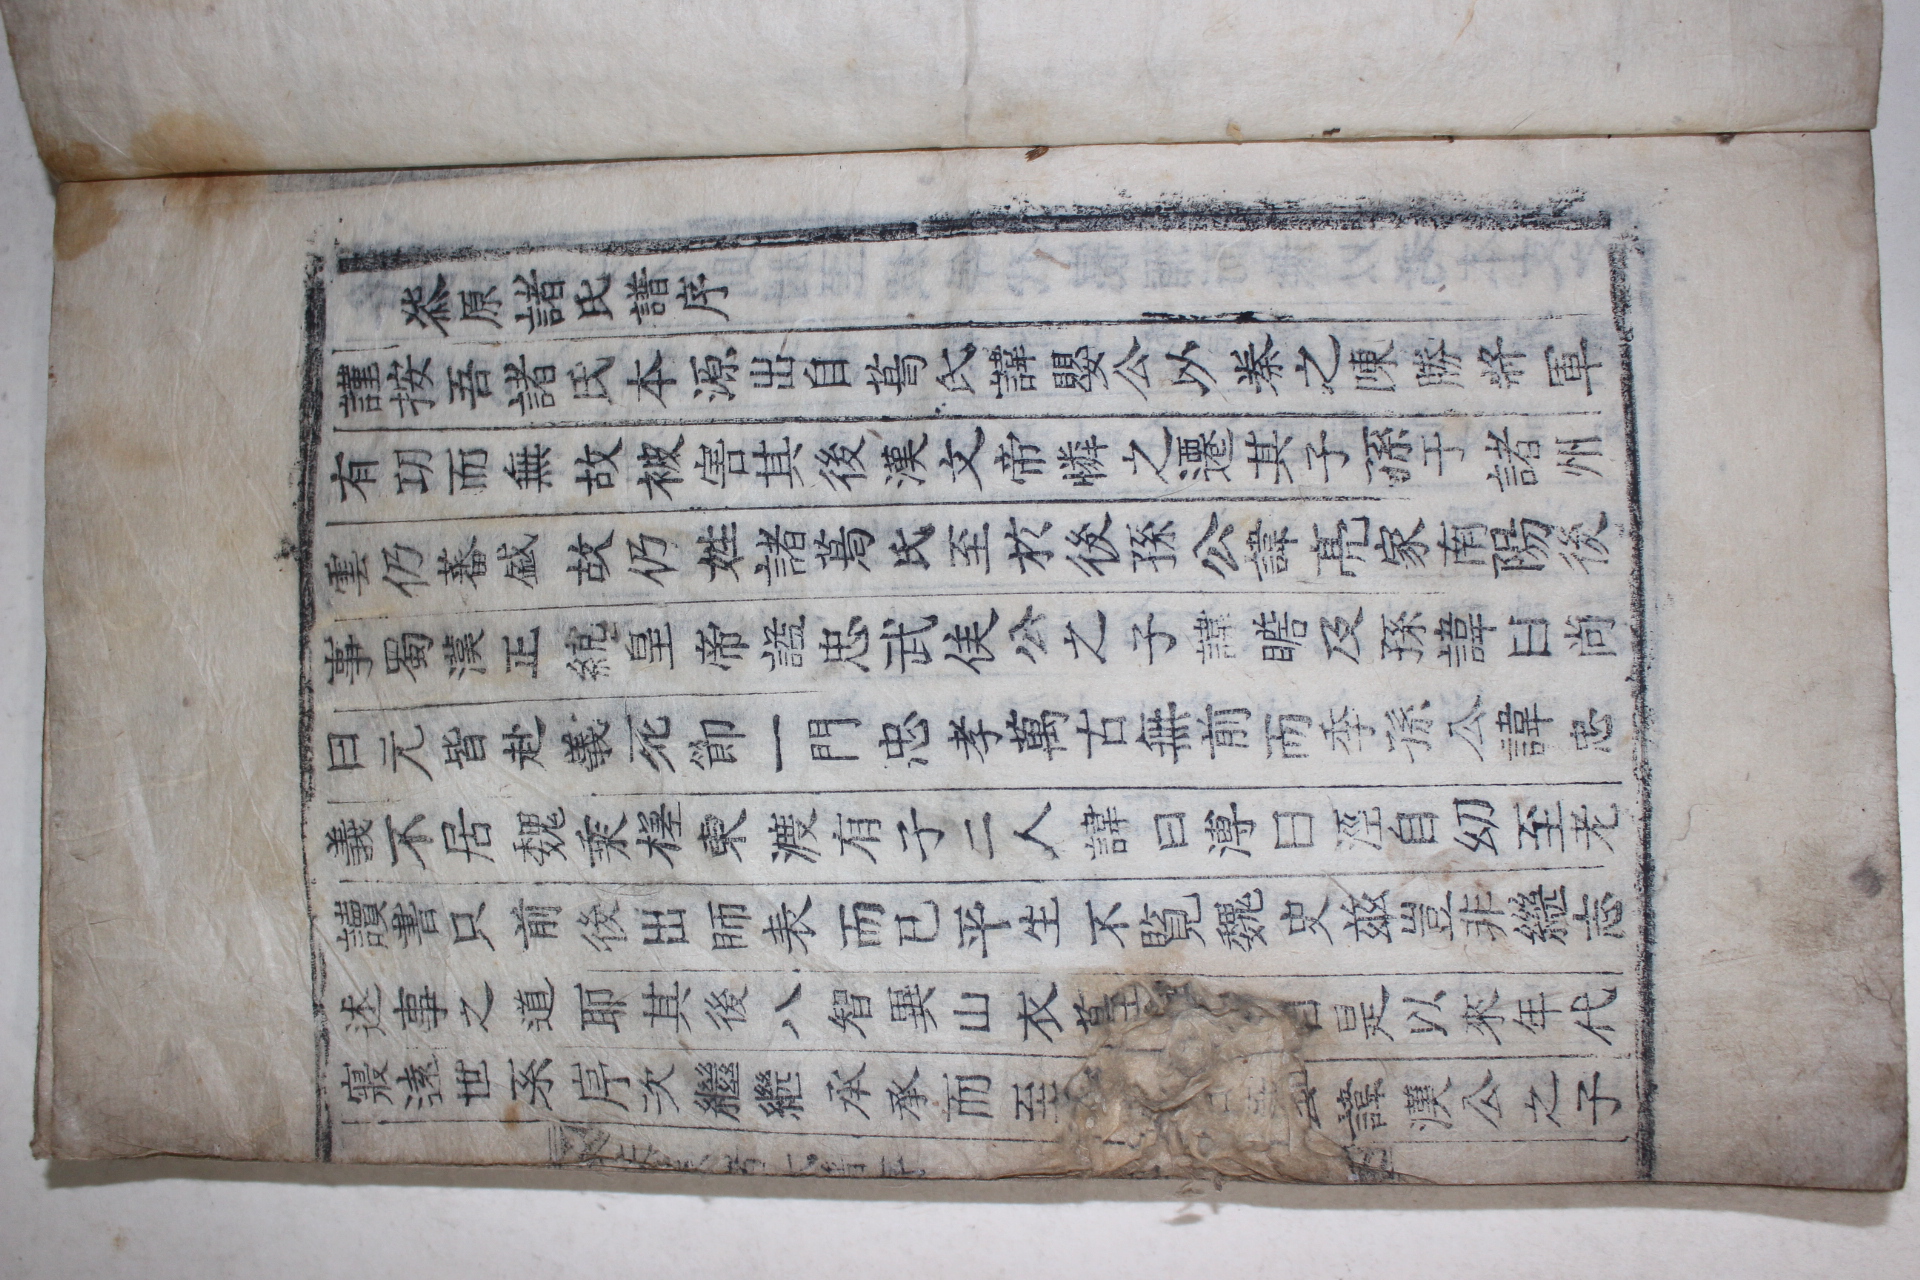 柒原諸氏譜序
謹按吾諸氏本源出自葛氏諱嬰公以秦之陳勝將軍
有功而無故被害其後漢文帝憐之遷其子孫于諸州
雲仍蕃盛故仍姓諸葛氏至於後孫公諱亮家南陽後
事蜀漢正統皇帝諡忠武侯公之子諱瞻及孫諱曰尚
曰元皆赴義死節一門忠孝萬古無前而季孫公諱忠
義不居魏乘槎東渡有子二人諱曰溥曰瀅自幼至老
讀書只前後出師表而已平生不覧魏史玆豈非繼志
述事之道耶其後八智異山衣 是以來年代
寢遠世系序次繼繼承承而至 諱漢公之子